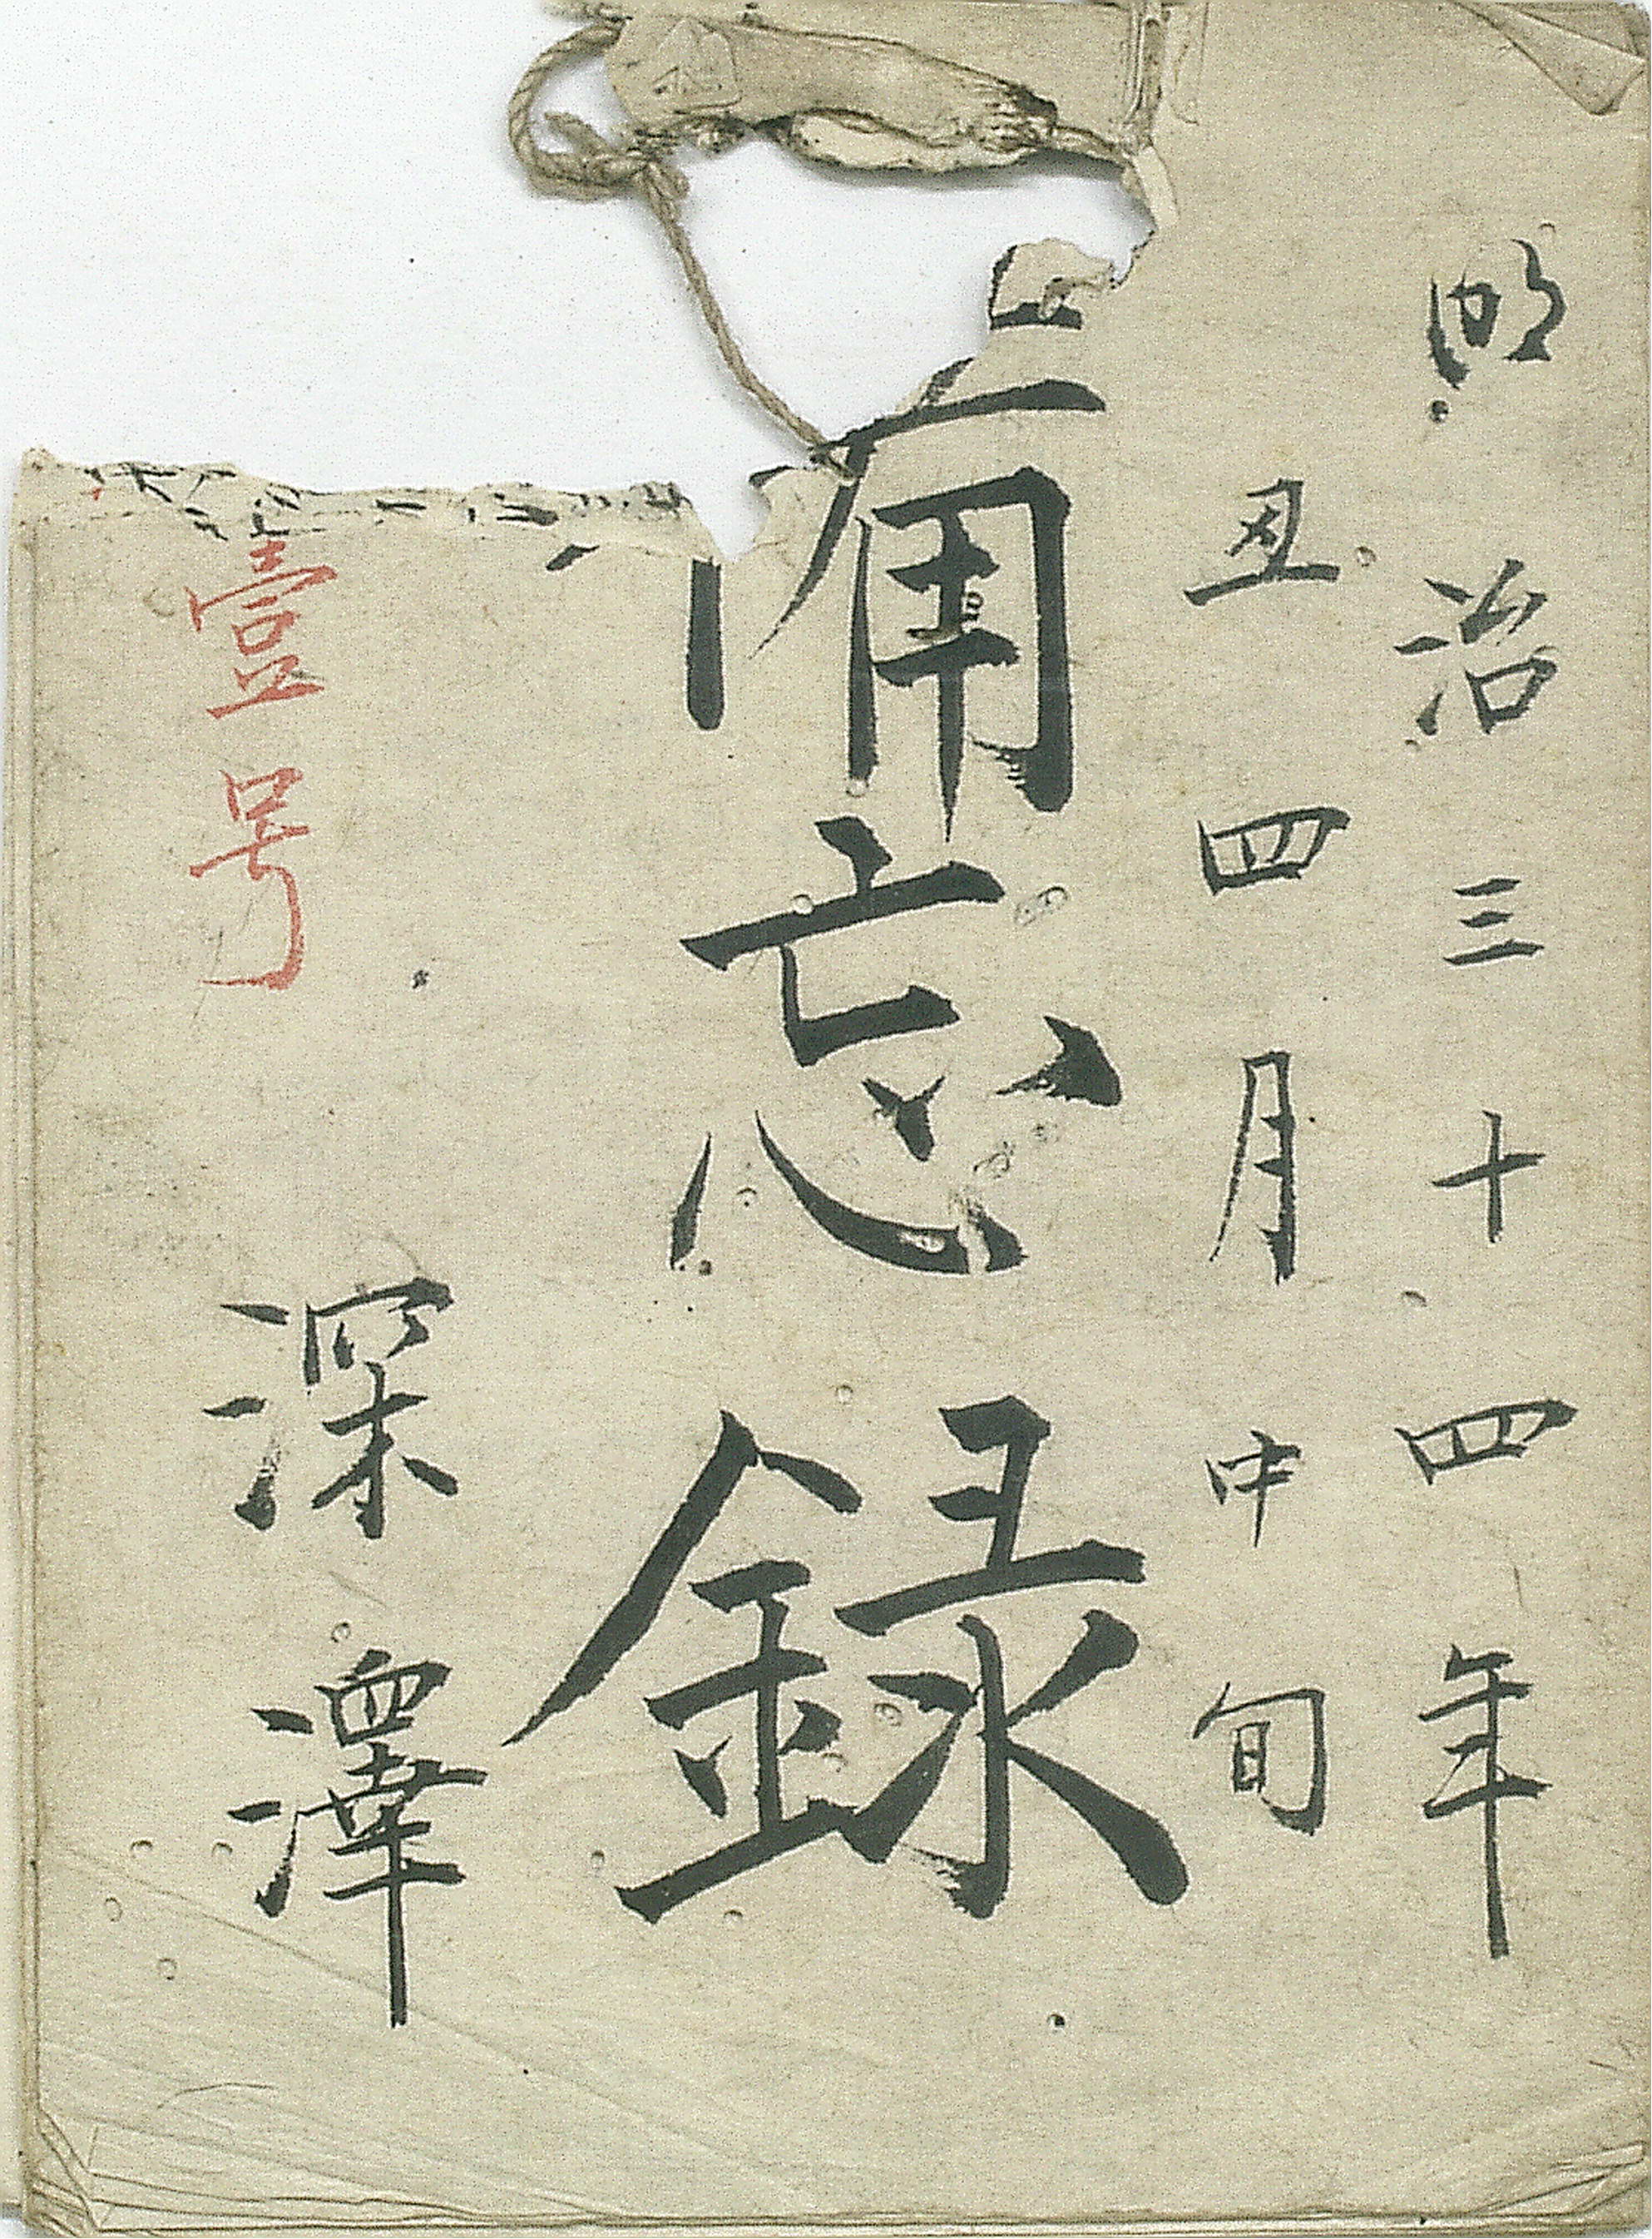 明治三十四年
丑四月中旬
備忘録
深澤
壹号